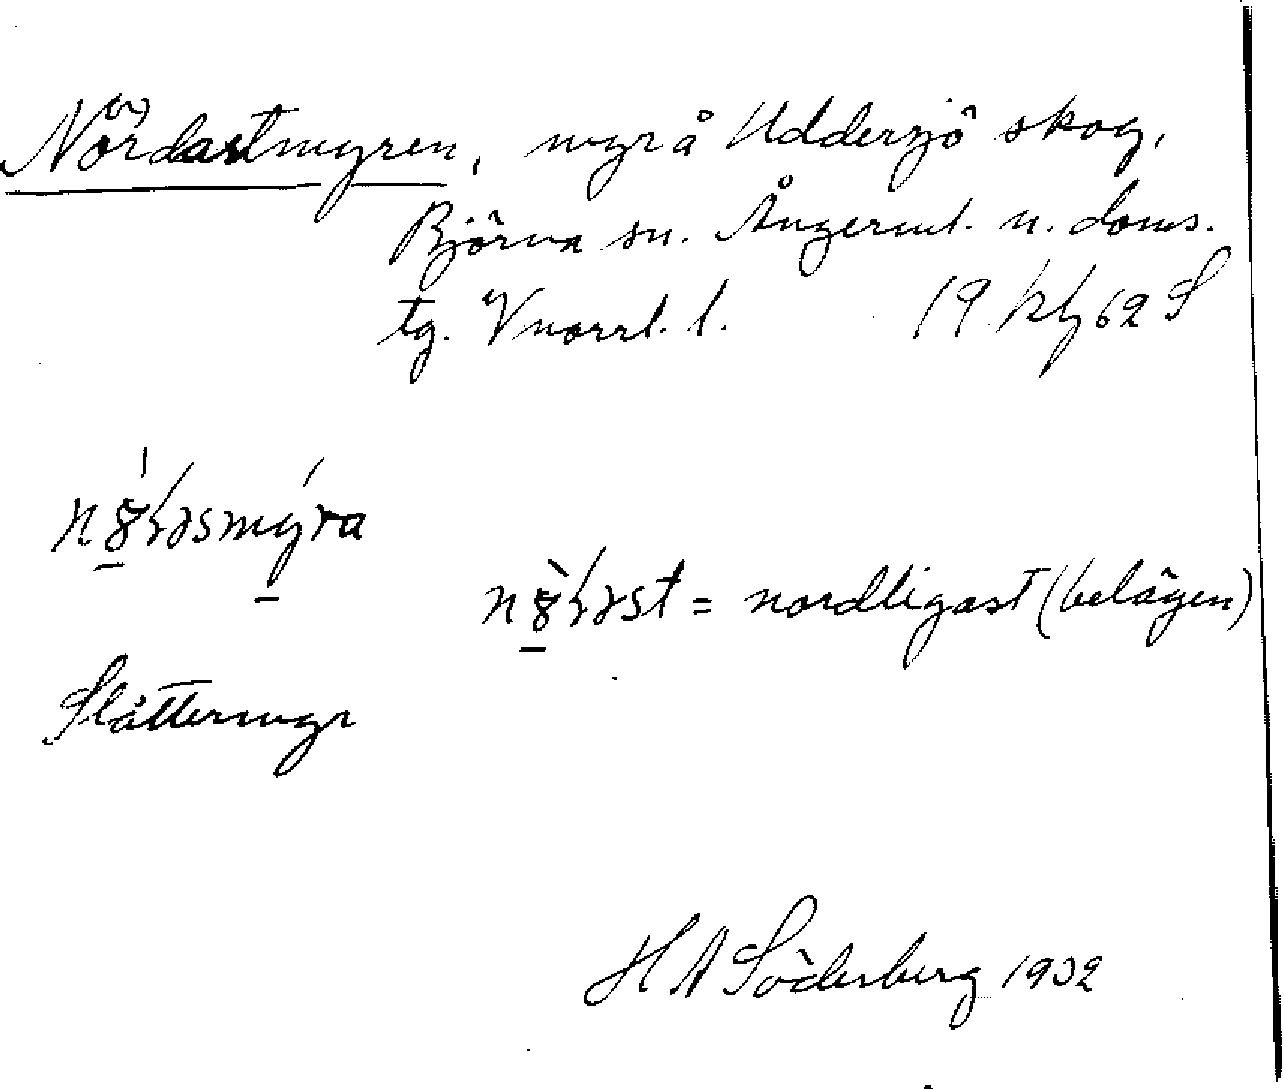 Nördastmyren, myr å Uddersjö skog,
Björna sn. Ångerml. n. doms.
tg. Vnorrl. l. 19 62 S
= nordligast (belägen)
Slåttermyr
H A Söderberg 1932